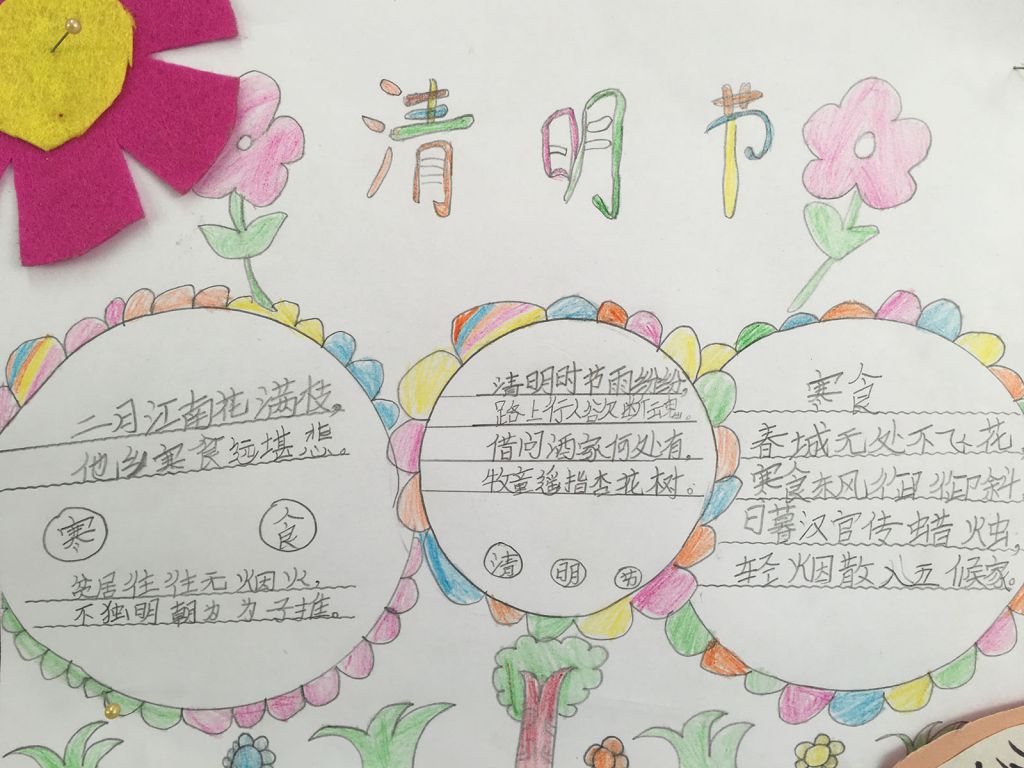 清明节
二月江南花满枝，
他乡寒食远堪悲。
寒 食
贫居往往无烟火，
不独明朝为子推。
清明时节雨纷纷，
路上行人欲断魂。
借问酒家何处有，
牧童遥指杏花树。
清 明 节
寒食
春城无处不飞花，
寒食东风御柳斜。
日暮汉宫传蜡烛，
轻烟散入五候家。